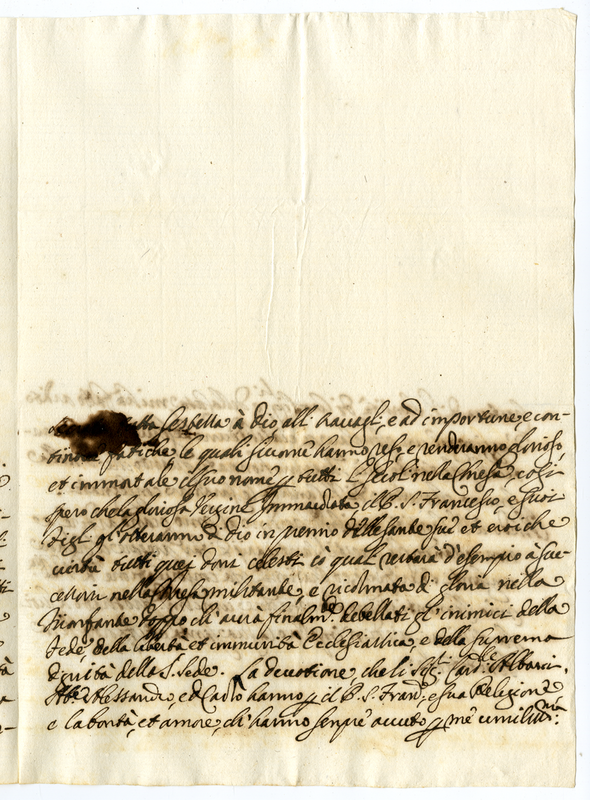 à dio all: travagli, e ad importune, e con-
fatiche le quali siccome hanno reso, e renderanno glorioso,
et immortale il suo nome p tutti li secoli nella Chiesa, così
spero che la gloriosa Vergine Immacolata, il P. S. Francesco, e suoi
figli gl'otteranno di dio in premio delle sante sue et eroiche
virtù tutti quej doni celesti co quali resterà d'esempio à suc-
cessori nella Chiesa militante, e ricolmato di gloria nella
trionfante doppo ch'avrà finalm.te debellati gl'inimici della
fede, della libertà et immunità Ecclesiastica, e della suprema
dignità della S. Sede. La devotione, che li Sig.ri Card.le Albani,
Ab.e Alessandro, ed Carlo hanno p il P. S. Fran.co e sua Religione
e la bontà, et amore, ch'hanno sempre avuto p me umiliss.mo: